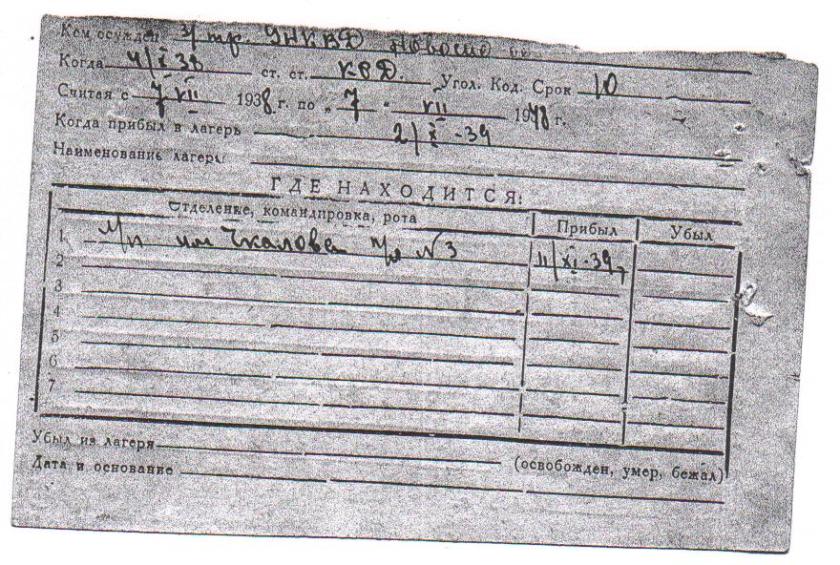 Кем осужден з/тр. УНКВД Новосиб
Когда 4/X 38 ст. ст. КРД. Угол. Код. Срок 10
Считая с 7 VII 1938 г. по „ 7 " VII 1948 г.
Когда прибыл в лагерь 2/X -39
Наименование лагеря
ГДЕ НАХОДИТСЯ:
Отделение, командировка, рота Прибыл Убыл
1 им Чкалова №3 11/XI-39
2
3
4
5
6
7
Убыл из лагеря (освобожден, умер, бежал)
Дата и основание